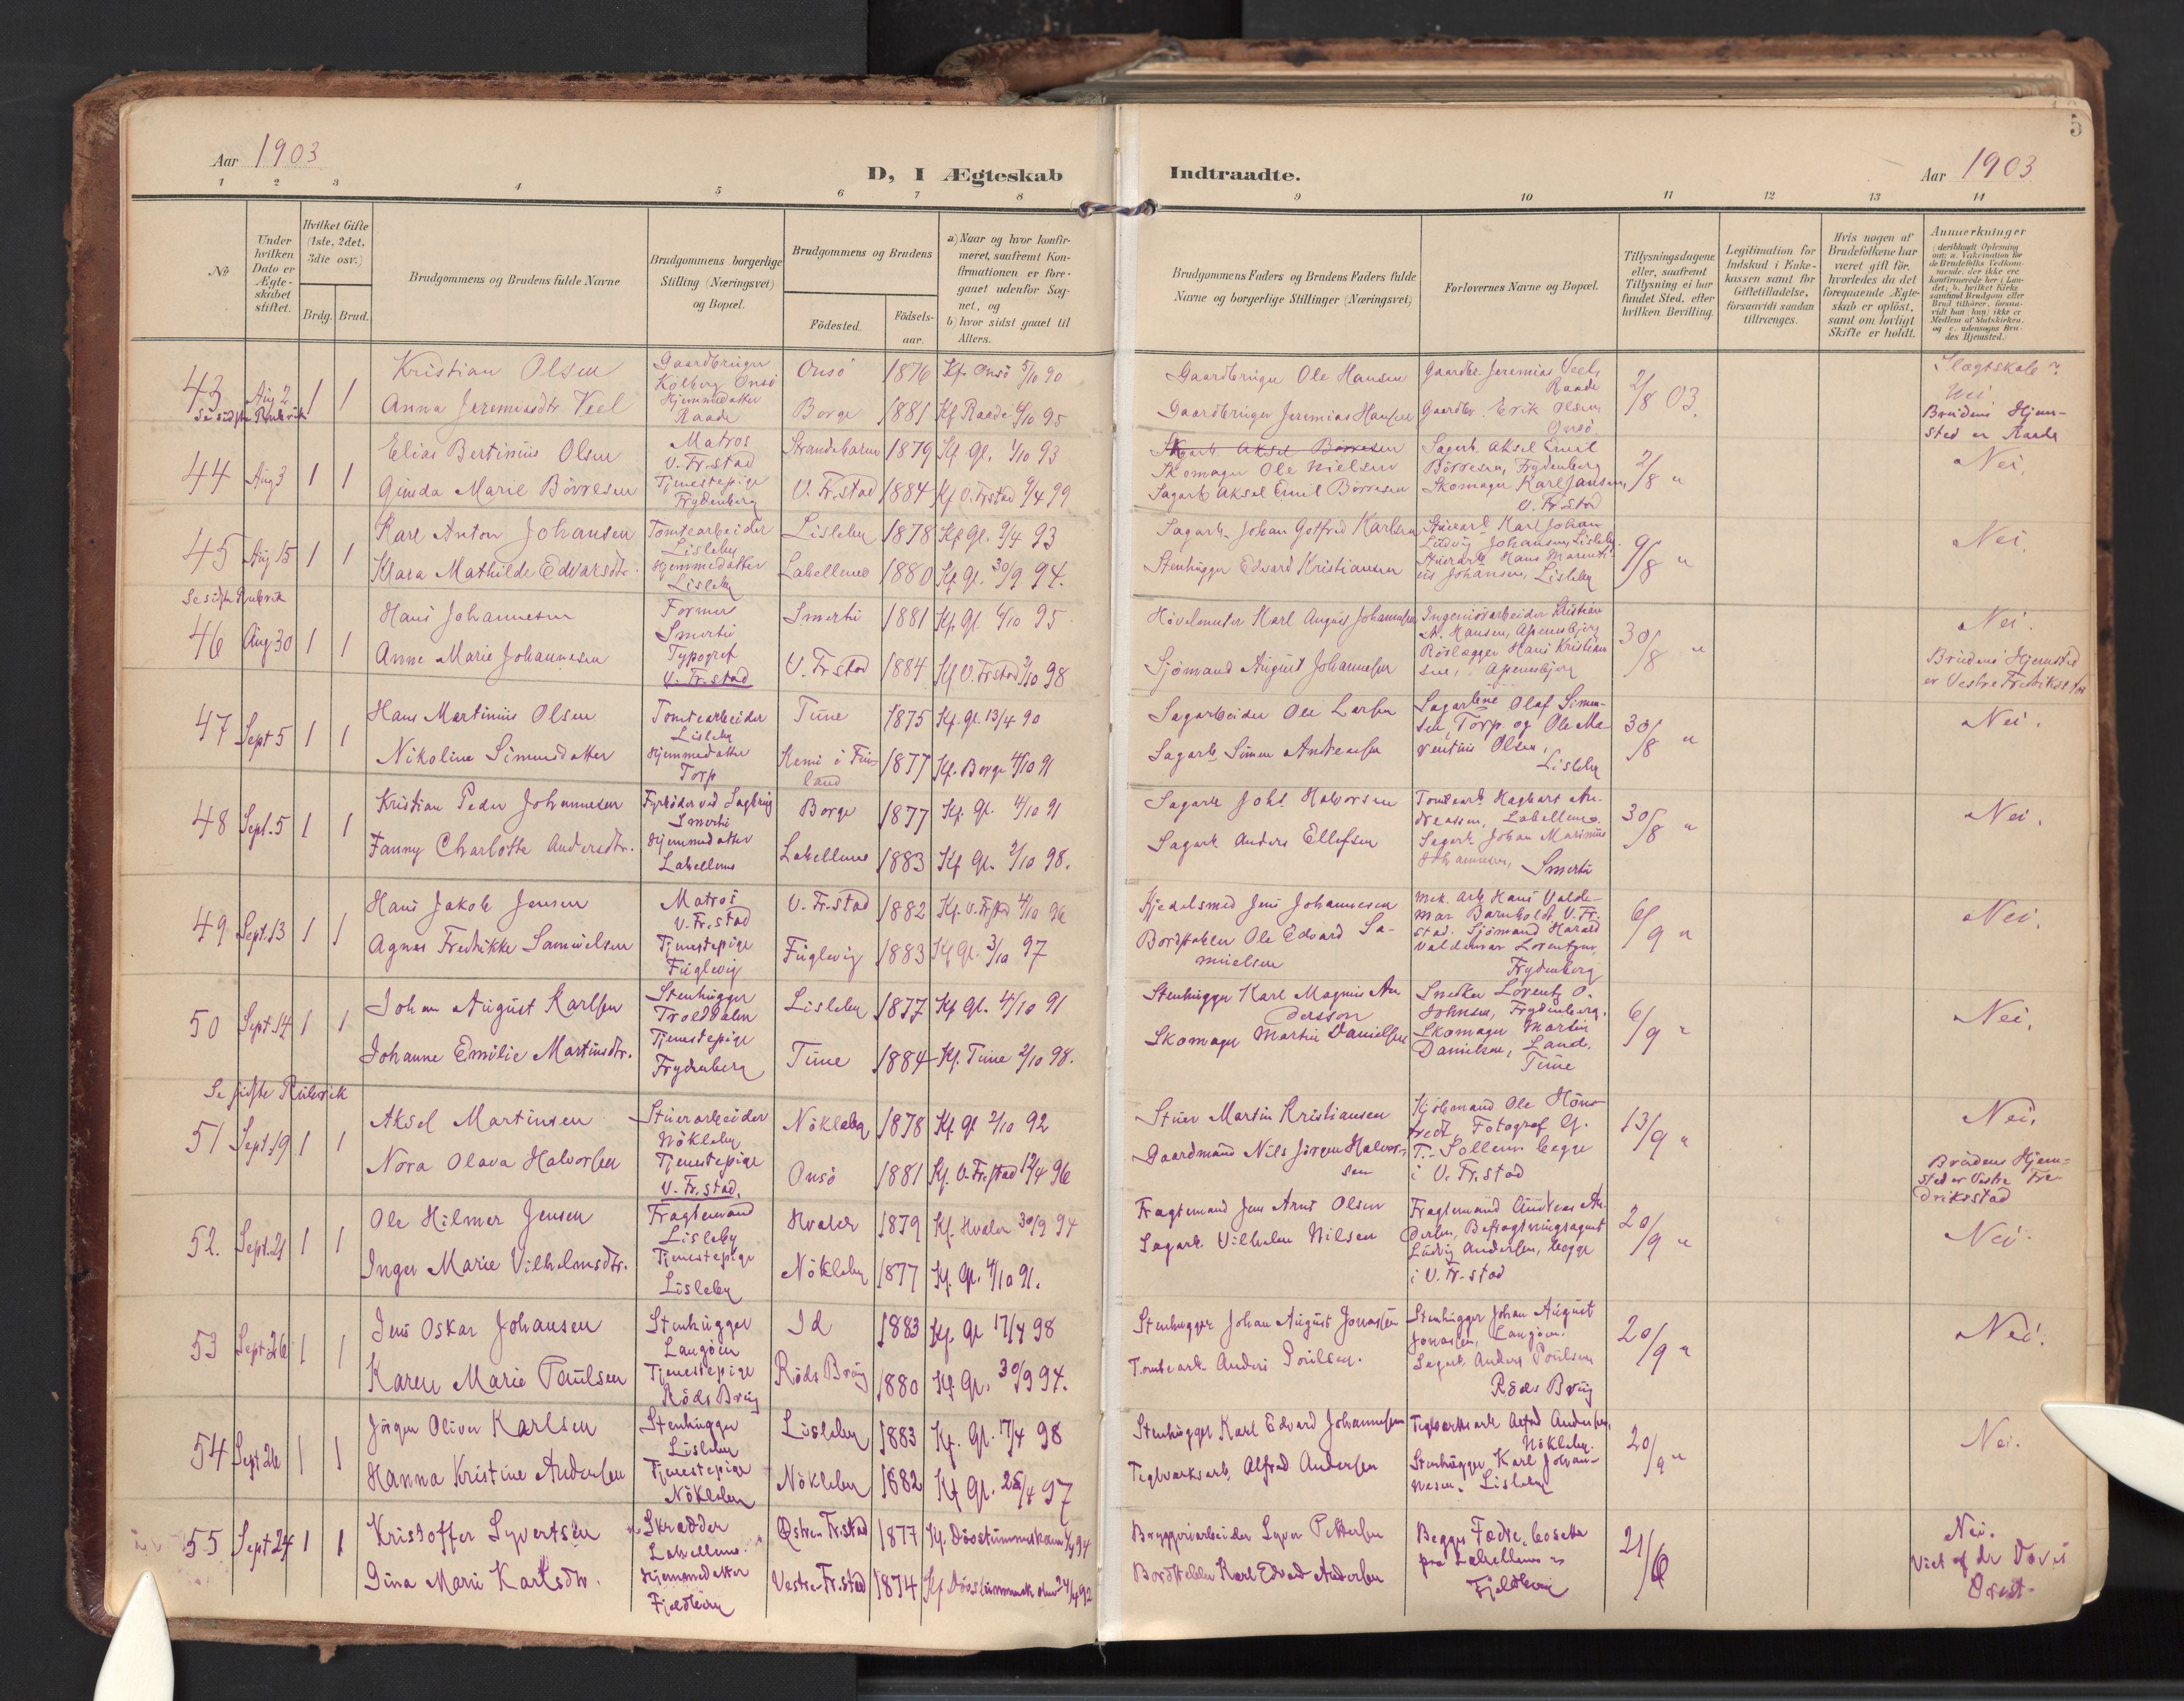 5
Aar 1903
D, I Ægteskab
Indtraadte.
Aar 1903
1 2 3 4 5 6 7 8 9 10 11 12 13 14
No
Under hvilken Dato er Ægteskabet stiftet.
Hvilket Gifte (1ste, 2det, 3die osv.)
Brdg. Brud.
Brudgommens og Brudens fulde Navne
Brudgommens borgerlige Stilling (Næringsvei) og Bopæl.
Brudgommens og Brudens
Fødested.
Fødsels-aar.
a) Naar og hvor konfirmeret, saafremt Konfirmationen er foregaaet udenfor Sognet, og
b) hvor sidst gaaet til Alters.
Brudgommens Faders og Brudens Faders fulde Navne og borgerlige Stillinger (Næringsvei)
Forlovernes Navne og Bopæl.
Tillysningsdagene eller, saafremt Tillysning ei har fundet Sted, efter hvilken Bevilling.
Legitimation for Indskud i Enkekassen samt for Giftetilladelse, forsaavidt saadan tiltrænges.
Hvis nogen af Brudefolkene har været gift før, hvorledes da det foregaaende Ægteskab er opløst, samt om lovligt Skifte er holdt.
Anmerkninger
43 Aug 2 1 1
Se sidste Rubrik
Kristian Olsen Gaardbruger Kolberg Onsö Onsö 1876 Kf. Onsö 5/10 90
Anna Jeremiasdtr Veel Hjemmedatter Raade Borge 1881 Kf Raade 6/10 95
Gaardbruger Ole Hansen
Gaardbruger Jeremias Hansen
Gaardbr. Jeremias Veel, Raade
Gaardbr. Erik Olsen, Onsö
2/8 03.
Slegtskab? Nei
Brudens Hjemsted er Raade
44 Aug 3 1 1
Elias Bertinius Olsen Matros V. Fr.stad Strandebarm 1879 Kf. Gl. 1/10 93
Gunda Marie Börresen Tjenestepige Frydenberg V. Fr.stad 1884 Kf V. Frstad 9/4 99
Skomager Ole Nielsen
Sagarb Aksel Emil Börresen
Sagarb. Aksel Emil Börresen, Frydenberg
Skomager Karl Jansen, V. Fr.stad
2/8 "
Nei.
45 Aug 15 1 1
Karl Anton Johansen Tomtearbeider Lisleby Lisleby 1878 Kf Gl. 9/4 93
Klara Mathilde Edvarsdtr. Hjemmedatter Lisleby Labellene 1880 Kf. Gl. 30/9 94.
Sagarb. Johan Gotfred Karlsen
Stenhugger Edvard Kristiansen
Stuerarb Karl Johan Ludvig Johansen, Lisleby.
Stuerarb Hans Marentius Johansen, Lisleby
9/8 "
Nei.
Se sidste Rubrik
46 Aug 30 1 1
Hans Johannesen Former Smertu Smertu 1881 Kf. Gl. 6/10 95
Anne Marie Johannesen Typograf V. Fr.stad V. Fr.stad 1884 Kf V. Frstad 2/10 98
Hövelmester Karl August Johannesen
Sjömand August Johannesen
Ingeniörarbeider Kristian A. Hansen, Apenesbjerg
Rörlægger Hans Kristiansen, Apenesbjerg
30/8 "
Nei.
Brudens Hjemsted er Vestre Fredrikstad
47 Sept 5 1 1
Hans Martinius Olsen Tomtearbeider Lisleby Tune 1875 Kf. Gl. 13/4 90
Nikoline Simensdatter Hjemmedatter Torp Kemi i Finland 1877 Kf. Borge 4/10 91
Sagarbeider Ole Larsen
Sagarb Simen Andreassen
Sagarbne Olaf Simensen, Torp og Ole Marentius Olsen, Lisleby
30/8 "
Nei.
48 Sept. 5 1 1
Kristian Peder Johannesen Fyrböder ved Sagbrug Smertu Borge 1877 Kf. Gl. 4/10 91
Fanny Charlotte Andersdtr. Hjemmedatter Labellene Labellene 1883 Kf Gl. 2/10 98.
Sagarb Johs. Halvorsen
Sagarb. Anders Ellefsen
Tomtearb. Hagbart Andreassen, Labellene.
Sagarb Johan Marinius Johannesen, Smertu
30/8 "
Nei.
49 Sept. 13 1 1
Hans Jakob Jensen Matros V. Fr.stad V. Fr.stad 1882 Kf. V. Frstad 4/10 96
Agnes Fredrikke Samuelsen Tjenestepige Fuglevig Fuglevig 1883 Kf Gl. 3/10 97
Kjedelsmed Jens Johannesen
Bordstabler Ole Edvard Samuelsen
Mek. Arb Hans Valdemar Barnholdt, V. Fr.stad.
Sjömand Harald Valdemar Lorentzen, Frydenberg
6/9 "
Nei.
50 Sept. 14 1 1
Johan August Karlsen Stenhugger Trolddalen Lisleby 1877 Kf Gl. 4/10 91
Johanne Emilie Martinsdtr. Tjenestepige Frydenberg Tune 1884 Kf. Tune 2/10 98.
Stenhugger Karl Magnus Andersson
Skomager Martin Danielsen
Snedker Lorentz O. Johnsen, Frydenberg.
Skomager Martin Danielsen, Lande, Tune
6/9 "
Nei.
Se sidste Rubrik
51 Sept. 19 1 1
Aksel Martinsen Stuerarbeider Nökleby Nökleby 1878 Kf. Gl 2/10 92
Nora Olava Halvorsen Tjenestepige V. Fr.stad. Onsö 1881 Kf. V. Fr.stad 12/4 96
Stuer Martin Kristiansen
Gaardmand Nils Jörgen Halvorsen
Kjöbmand Ole Hönstvedt, Fotograf G. T. Sollem begge i V. Fr.stad
13/9 "
Nei.
Brudens Hjemsted er Vestre Fredrikstad
52. Sept. 21 1 1
Ole Hilmer Jensen Fragtemand Lisleby Hvaler 1879 Kf. Hvaler 30/9 94
Inger Marie Vilhelmsdtr. Tjenestepige Lisleby Nökleby 1877 Kf. Gl. 4/10 91.
Fragtemand Jens Arnt Olsen
Sagarb Vilhelm Nilsen
Fragtemand Andreas Andersen, Befragtningsagent Ludvig Andersen, begge i V. Fr.stad
20/9 "
Nei.
53 Sept 26 1 1
Jens Oskar Johansen Stenhugger Langöen Id 1883 Kf. Gl 17/4 98
Karen Marie Paulsen Tjenestepige Röds Brug Röds Brug 1880 Kf. Gl. 30/9 94.
Stenhugger Johan August Jonassen
Tomtearb Anders Poulsen.
Stenhugger Johan August Jonassen, Langöen.
Sagarb. Anders Poulsen Röds Brug
20/9 "
Nei.
54 Sept 26 1 1
Jörgen Oliver Karlsen Stenhugger Lisleby Lisleby 1883 Kf. Gl. 17/4 98
Hanna Kristine Andersen Tjenestepige Nökleby Nökleby 1882 Kf Gl. 25/4 97
Stenhugger Karl Edvard Johannesen
Teglværksarb. Alfred Andersen
Teglværksarb Alfred Andersen, Nökleby.
Stenhugger Karl Johannesen. Lisleby
20/9 "
Nei.
55 Sept 24 1 1
Kristoffer Syvertsen Skrædder Labellene. Østre Fr.stad 1877 Kf. Dövstummesk 94
Gina Marie Karlsdtr. Hjemmedatter Fjeldberg Vestre Fr.stad 1874 Kf Dövstummesk 24/4 92
Bryggeriarbeider Syver Pettersen
Bordstabler Karl Edvard Andersen
Begges Fædre, bosatte paa Labellene og Fjeldberg
21/6
Nei.
Viet af de Döves Præst.